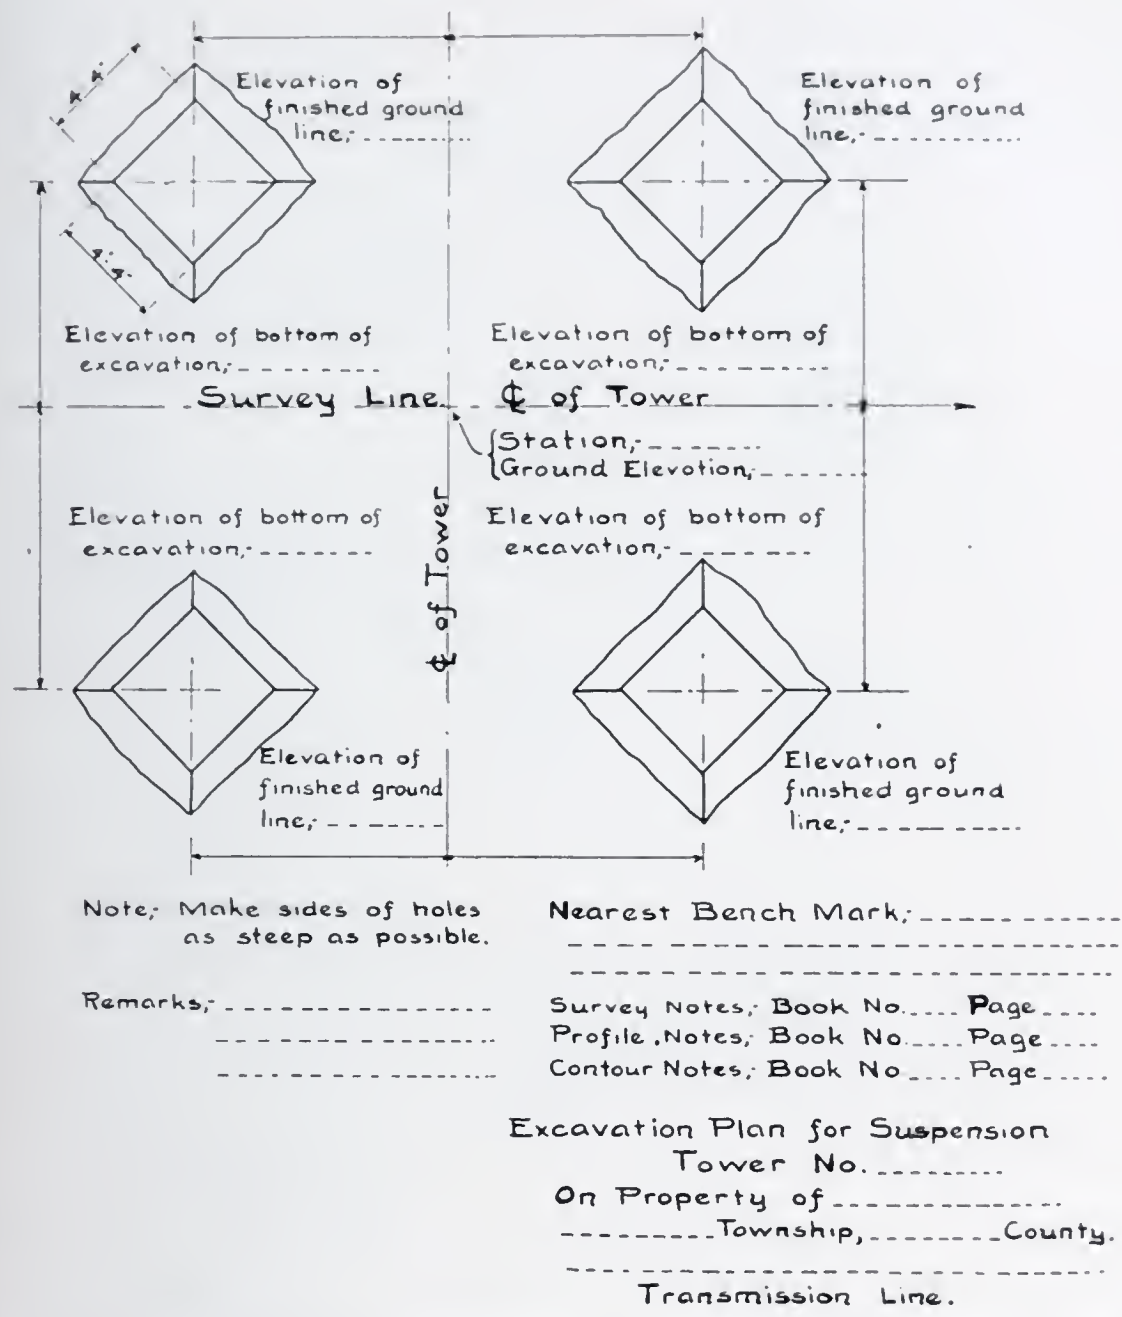 Elevation of
finished ground
line,- ---------
Elevation of
finished ground
line,- ------------
Elevation of bottom of
excavation,- ---------
Elevation of bottom of
excavation,- ---------
Survey Line ℄ of Tower
Station,- --------
Ground Elevation,- -------
℄ of Tower
Elevation of bottom of
excavation,- -------
Elevation of bottom of
excavation,- -------
Elevation of
finished ground
line,- --------
Elevation of
finished ground
line,- ------------
Note,- Make sides of holes
as steep as possible.
Remarks,- -----------------
Nearest Bench Mark,- -------------
Survey Notes,- Book No..... Page ....
Profile Notes,- Book No..... Page ....
Contour Notes,- Book No .... Page .....
Excavation Plan for Suspension
Tower No. ---------
On Property of ---------------
---------- Township, -------- County.
Transmission Line.